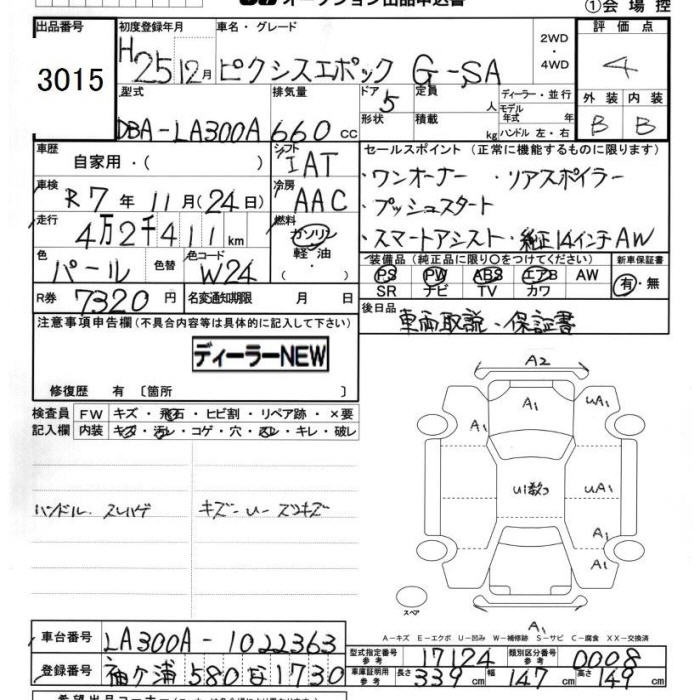 オークション出品申込書 ①会場控
出品番号 初度登録年月 車名・グレード 2WD・4WD 評価点
3015 H25 12月 ピクシスエポック G-SA 4
型式 排気量 ドア 定員 人 ディーラー・並行 外装 内装
DBA-LA300A 660 cc 5 モデル年式 年式 B B
形状 積載 kg ハンドル 左・右
車歴 自家用・( ) シフト IAT セールスポイント (正常に機能するものに限ります)
車検 R7年 11月(24日) 冷房 AAC ・ワンオーナー ・リアスポイラー
・プッシュスタート
走行 4万2千411km 燃料 ガソリン・軽油・ ・スマートアシスト・純正14インチAW
色 パール 色替 色コード W24 装備品(純正品に限り○をつけてください) 新車保証書
PS PW ABS エアB AW 有・無
SR ナビ TV カワ
R券 7320円 名変通知期限 月 日 後日品 車両取説・保証書
注意事項申告欄(不具合内容等は具体的に記入して下さい)
ディーラーNEW
修復歴 有 〔箇所 〕
検査員記入欄 FW キズ・飛石・ヒビ割・リペア跡・×要
内装 キズ・汚レ・コゲ・穴・スレ・キレ・破レ
A2
A1 UA1
A1
ハンドル. スレハゲ キズ-U-スリキズ U1数コ UA1
A1
A1
スペア
A1
A-キズ E-エクボ U-凹み W-補修跡 S-サビ C-腐食 XX-交換済
車台番号 LA300A-1022363 型式指定番号 参考 17124 類別区分番号 参考 0008
登録番号 袖ケ浦 580 1730 車庫証明用 参考 長さ 339cm 幅 147cm 高さ 149cm